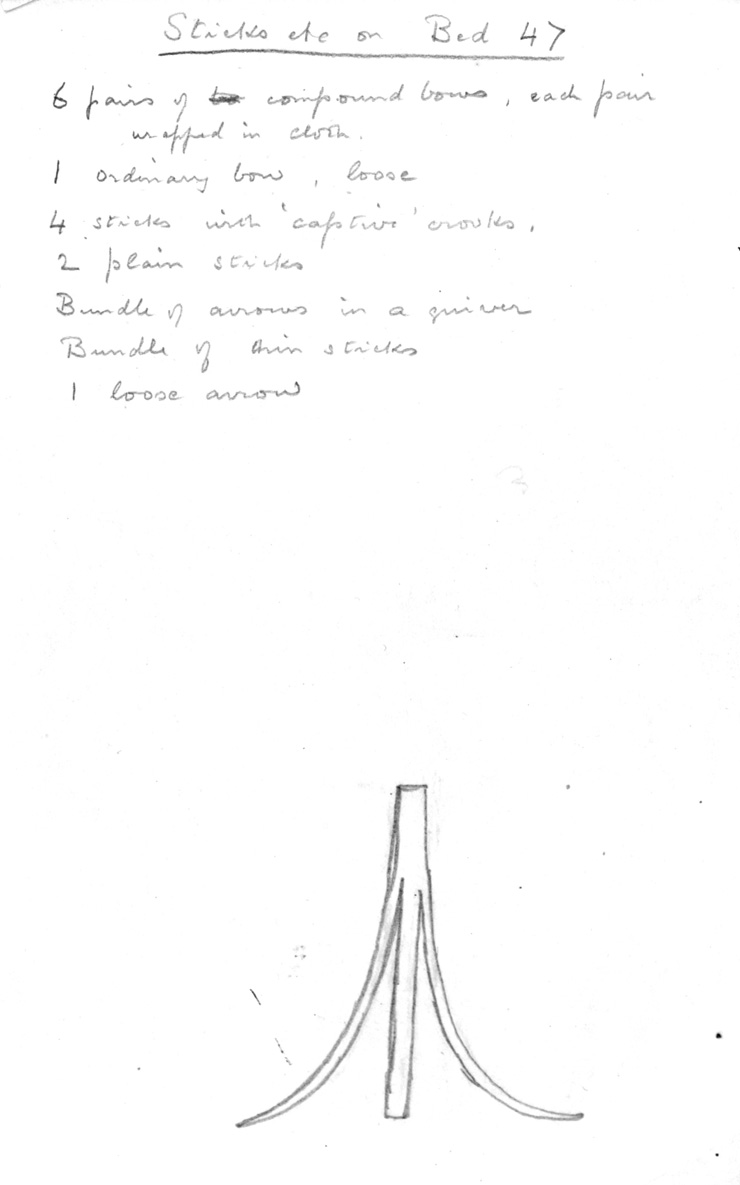 Sticks etc on Bed 47
6 pairs of compound bows, each pair
wrapped in cloth.
1 ordinary bow, loose
4 sticks with 'captive' crooks,
2 plain sticks
Bundle of arrows in a quiver
Bundle of thin sticks
1 loose arrow